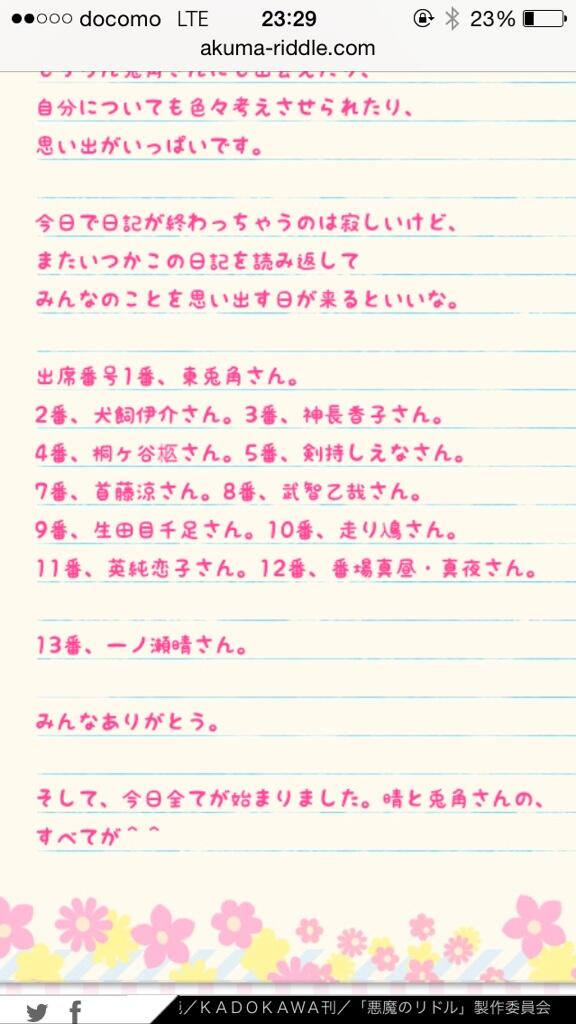 docomo LTE 23:29 23%
akuma-riddle.com
自分についても色々考えさせられたり、
思い出がいっぱいです。
今日で日記が終わっちゃうのは寂しいけど、
またいつかこの日記を読み返して
みんなのことを思い出す日が来るといいな。
出席番号1番、東兎角さん。
2番、犬飼伊介さん。3番、神長香子さん。
4番、桐ケ谷柩さん。5番、剣持しえなさん。
7番、首藤涼さん。8番、武智乙哉さん。
9番、生田目千足さん。10番、走り鳰さん。
11番、英純恋子さん。12番、番場真昼・真夜さん。
13番、一ノ瀬晴さん。
みんなありがとう。
そして、今日全てが始まりました。晴と兎角さんの、
すべてが＾＾
／KADOKAWA刊／「悪魔のリドル」製作委員会